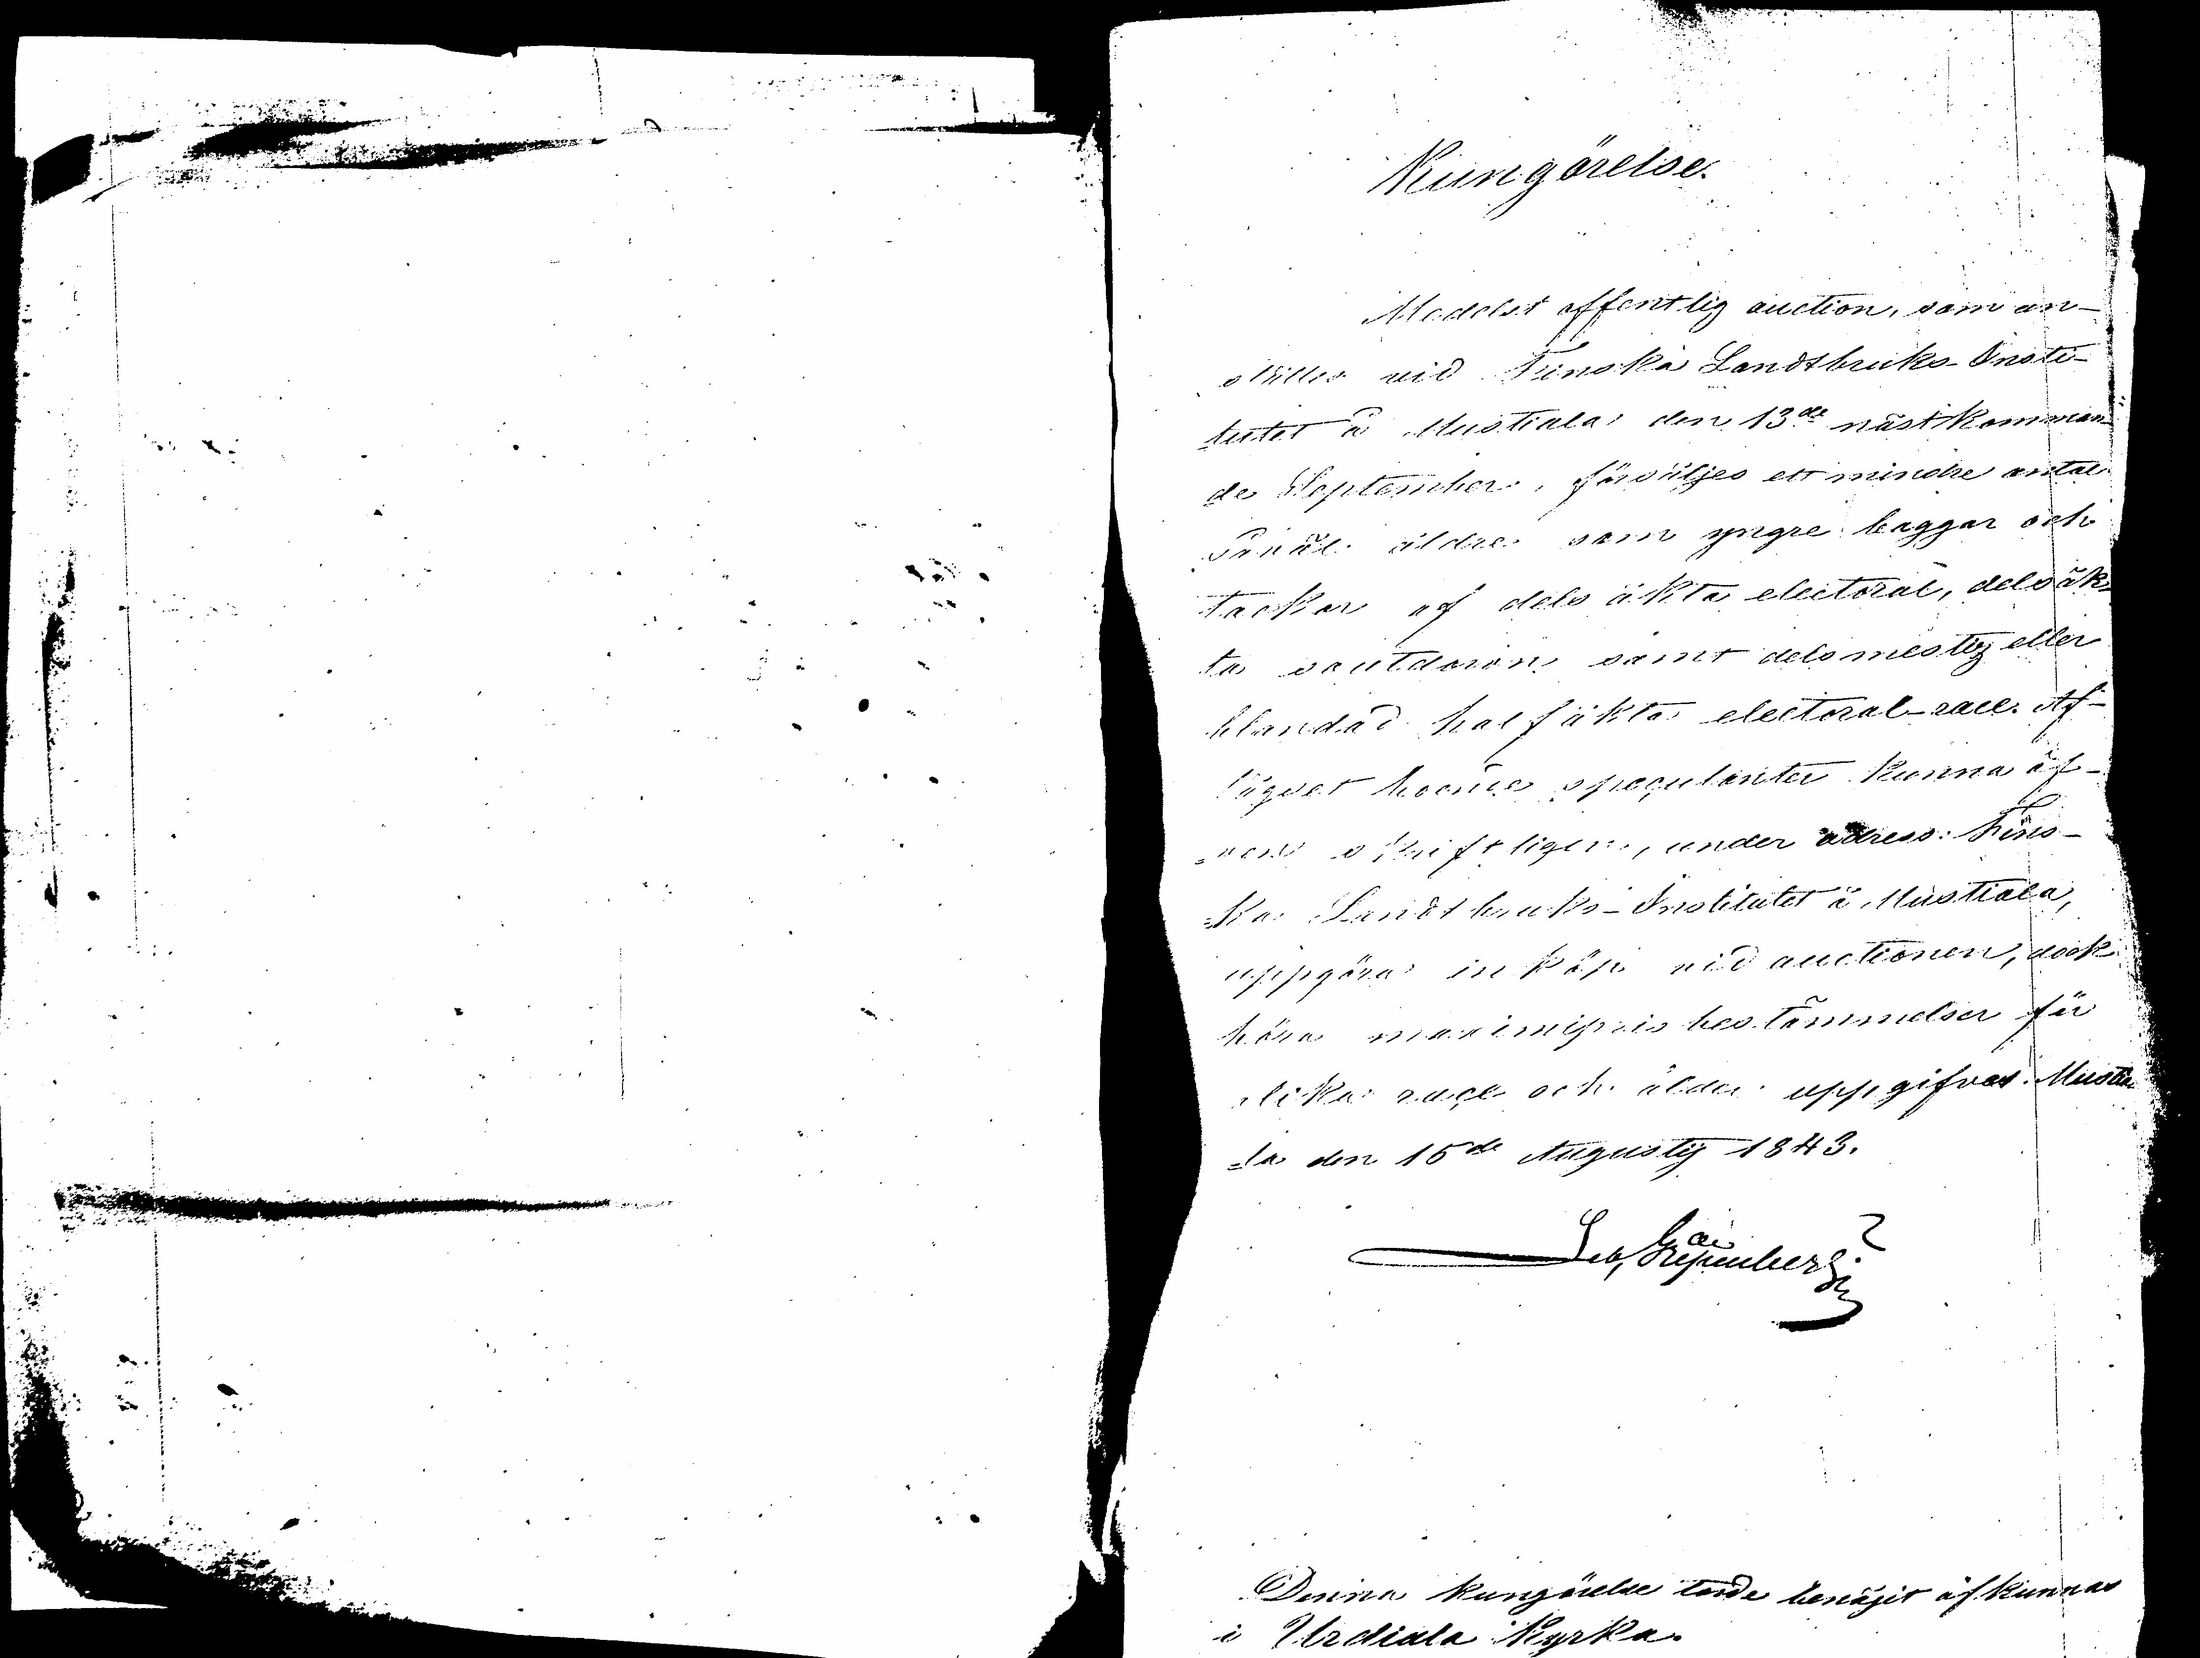 Kungörelse.
Medelst offentlig auction, som an-
ställes vid Finska Landtbruks-Insti-
tutet å Mustiala den 13de nästkomman-
de September, försäljes ett mindre antal
såväl äldre som yngre baggar och
tackor af dels äkta electoral, dels äk-
ta southdown samt dels mestiz eller
blandad half äkta electoral-race. Af-
lägset boende speculanter kunna äf-
ven skriftligen, under adress: Fins-
ka Landtbruks-Institutet å Mustiala,
uppgöra inköp vid auctionen, dock
böra maximipris bestämmelser för
olika race och ålder uppgifvas. Mustia-
la den 15de Augustij 1843.
Seb, Gripenberg
Denna kungörelse torde benäget afkunnas
i Urdiala Kyrka.